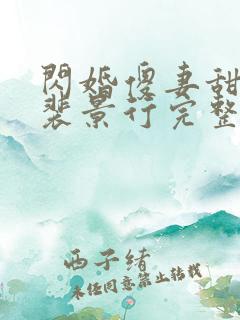 閃婚傻妻甜
裴景行完整
西子緒
未經同意禁止轉載